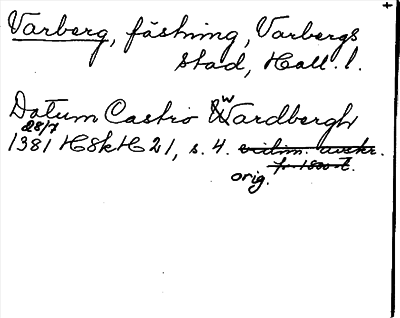 +
Varberg, fästning, Varbergs
stad, Hall. l.
Datum Castro Wardbergh
28/7
1381 HSkH 21, s. 4. vidim. avskr.
fr. 1500-t.
orig.